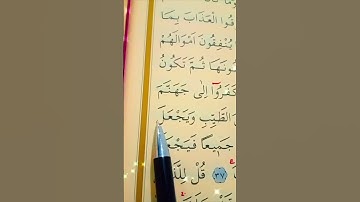 قُوا الْعَذَابَ بِمَا
يُنْفِقُونَ اَمْوَالَهُمْ
ونَهَا ثُمَّ تَكُونُ
كَفَرُٓوا اِلٰى جَهَنَّمَ
الطَّيِّبِ وَيَجْعَلَ
جَمٖيعاً فَيَجْعَ
٣٧ قُلْ لِلَّذ